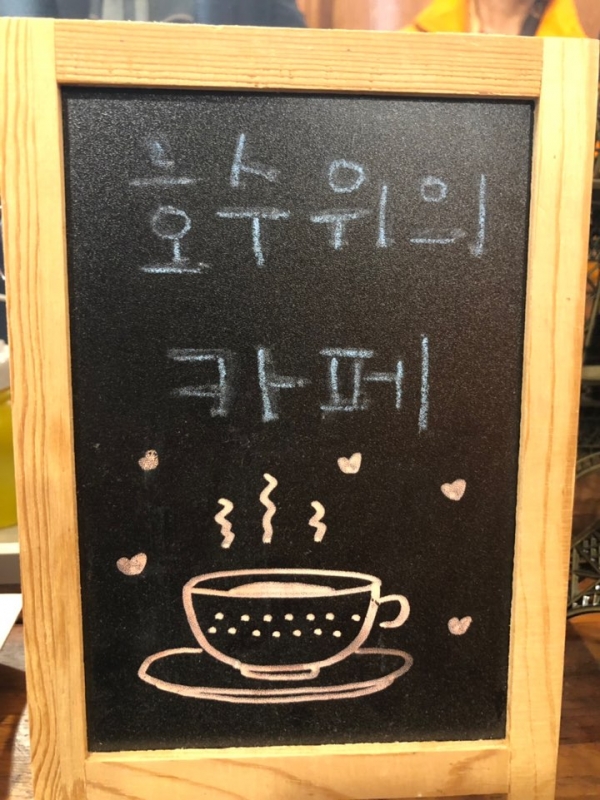 호수위의
카페